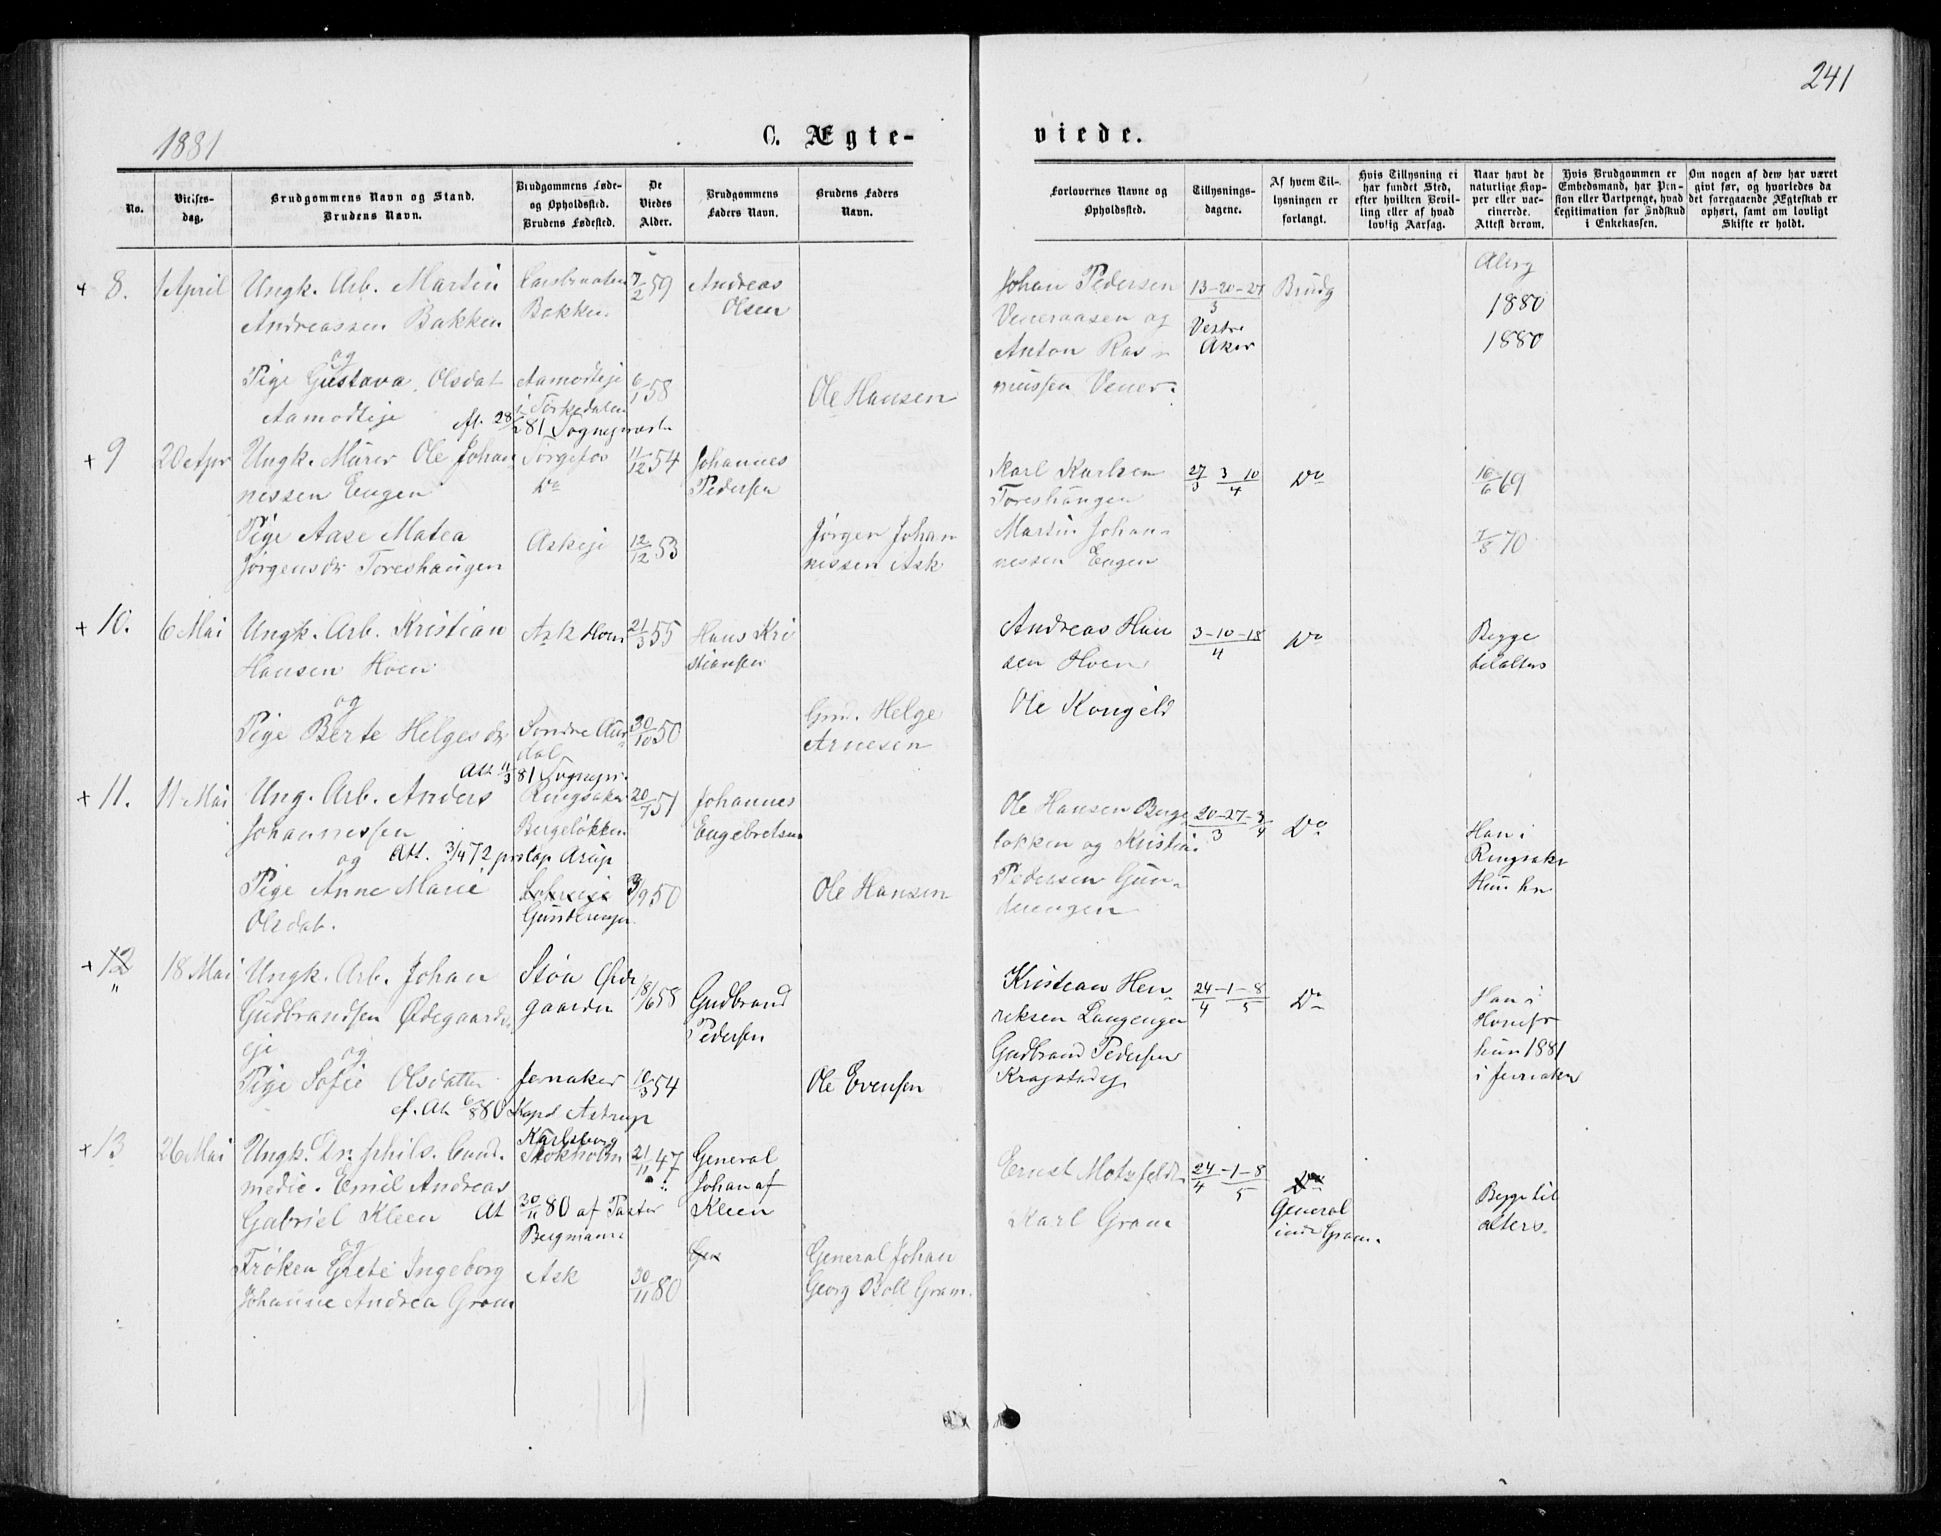 241
1881
C. Ægte-
viede.
No.
Vielses-
dag.
Brudgommens Navn og Stand.
Brudens Navn.
Brudgommens Føde-
og Opholdssted.
Brudens Fødested.
De
Viedes
Alder.
Brudgommens
Faders Navn.
Brudens Faders
Navn.
Forlovernes Navne og
Opholdssted.
Tillysnings-
dagene.
Af hvem Til-
lysningen er
forlangt.
Hvis Tillysning ei
har fundet Sted,
efter hvilken Bevil-
ling eller af hvad
lovlig Aarsag.
Naar havt de
naturlige Kop-
per eller vac-
cinerede.
Attest derom.
Hvis Brudgommen er
Embedsmand, har Pen-
sion eller Vartpenge, hvad
Legitimation for Indskud
i Enkekassen.
Om nogen af dem har været
givt før, og hvorledes da
det foregaaende Ægteskab er
ophørt, samt om lovligt
Skifte er holdt.
+ 8. 1 April Ungk. Arb. Martin 7/2 59 Andreas Johan Pedersen 13-20-27/3 Brudg
Andreassen Bakken Bakken Olsen Veneraasen og Vestre 1880
og Anton Ras- Aker 1880
Pige Gustava Olsdat Aamodteje 6/1 58 Ole Hansen mussen Vener.
Aamodteje i Sørkedalen
28/2 81 Sognepræst
+ 9 20 Apr Ungk. Murer Ole Johan 11/12 54 Johannes Karl Karlsen 27/3 3-10/4 Do 10/6 69
nessen Engen Do Pedersen Toreshaugen
Pige Aase Matea Askeje 12/12 53 Jørgen Johan Martin Johan- 7/8 70
Jørgensdr Toreshaugen nissen Ask nessen Engen
+ 10. 6 Mai Ungk. Arb. Kristian Ask Hoen 21/3 55 Hans Kri Andreas Han 3-10-18/4 Do Begge
Hansen Hoen stiansen sen Hoen tilalters
og Ole Kongeld
Pige Berte Helgesdr Søndre Aur 30/10 50 Helge
dal Arnesen
Att 11/3 81 Sognepr.
+ 11. 11 Mai Ung. Arb. Anders Ringsaker 20/7 51 Johannes Ole Hansen Berge 20-27/3-3/4 Do
Johannessen Bergeløkken Engebretsen løkken og Kristian Han i
og Att. 3/4 72 Pedersen Gun- Ringsaker
Pige Anne Marie 3/9 50 Ole Hansen derengen Hun her
Olsdat. Gunderengen
+ 12 18 Mai Ungk. Arb. Johan Støa Øde 18/6 58 Gudbrand Kristian Hen 24/4-1-8/5 Do Han i
Gudbrandsen Ødegaards gaarden Pedersen reksen Langengen Honefos
eje og Gudbrand Pedersen hun 1881
Pige Sofie Olsdatter Jevnaker 10/3 54 Ole Evensen Kragstadej i Jevnaker
cf. At 6/8 80 Kapel Astrup
+ 13 26 Mai Ungk. Dr. phils. Cand. Karlsborg Stokholm 21/11 47 General Ernst Motzfeldt 24/4-1-8/5 Do
medic. Emil Andreas Johan af Begge til
Gabriel Kleen At 30/11 80 af Pastor Kleen Karl Gram General alters.
og Bergmann Gram.
Frøken Grete Ingeborg Ask 30/11 80 Gen General Johan
Johanne Andrea Gram Georg Boll Gram.